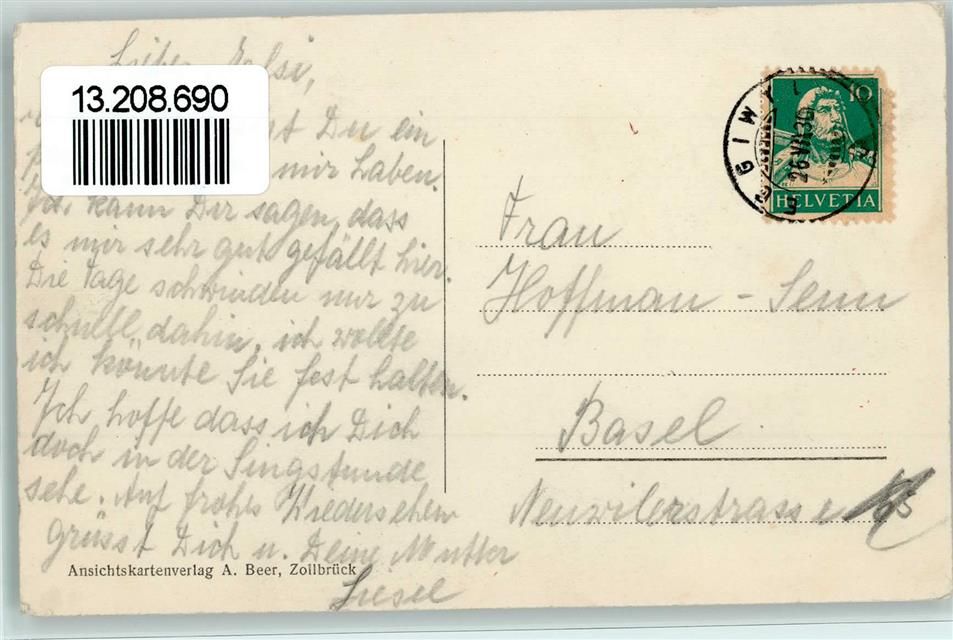 Elsi,
13.208.690
Du ein
mir haben.
Ich kann Dir sagen, dass
es mir sehr gut gefällt hier.
Die Tage schwinden nur zu
schnell dahin, ich wollte
ich könnte Sie fest halten.
Ich hoffe dass ich Dich
doch in der Singstunde
sehe. Auf frohes Wiedersehen
grüsst Dich u. Deine Mutter
Liesel
Ansichtskartenverlag A. Beer, Zollbrück
10
HELVETIA
EGGIWIL
Frau
Hoffman - Senn
Basel.
Neuwilerstrasse